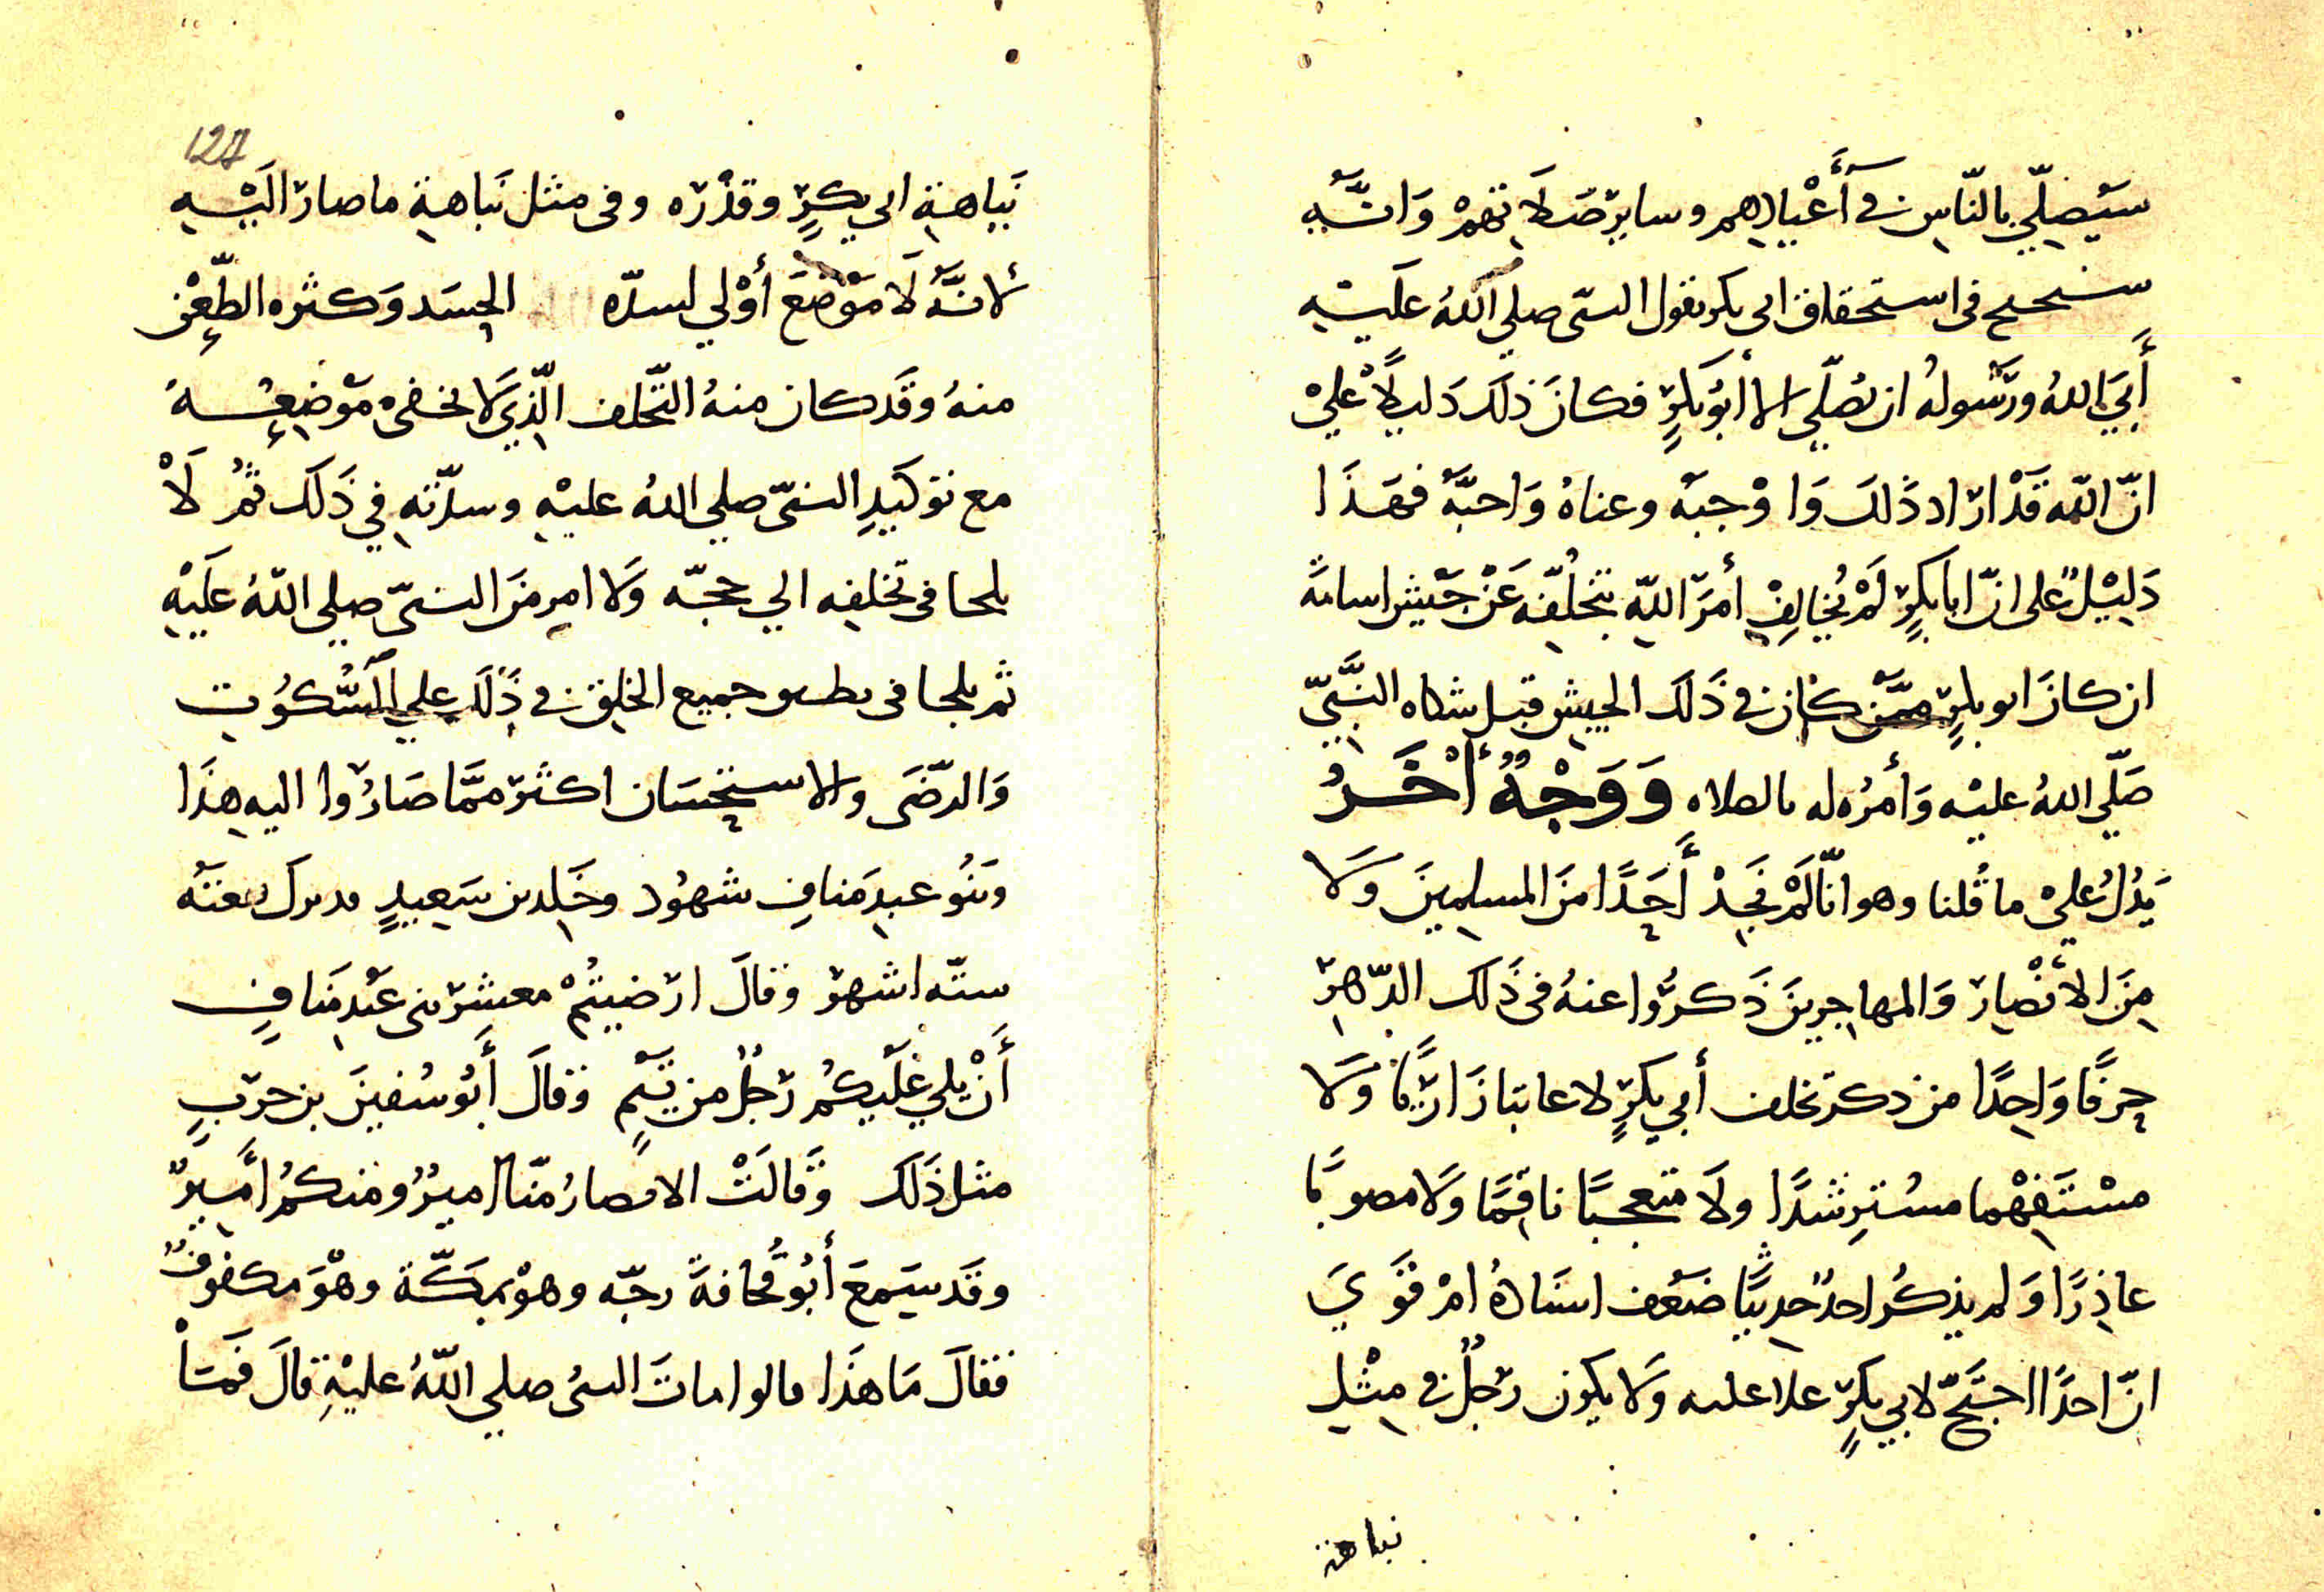 سَيُصلّي بالنّاسِ في أَعْيادِهم وسايرِ صَلَاتِهمْ وَانّه
سنحتج في استحقاق ابي بكر بقول النبي صلي الله عليه
أَبَي اللهُ ورَسُولهُ ان يُصَلّي الا أبُو بَكرٍ فكانَ ذلكَ دَليلاً عليْ
انّ اللّه قَدْ ارَاد ذَلكَ وَاوْجبَه وعناهُ وَاحبَّه فهَذَا
دَلِيْلٌ على انّ ابا بكرٍ لَمْ يُخالِفْ أمرَ اللّهِ بتخلُّفِه عَنْ جَيْشِ اسامَة
ان كانَ ابو بكرٍ ممّن كان في ذَلكَ الجيشِ قبل شكاه النَّبيّ
صَلّي اللهُ عليْه وَأمرُه له بالصلاه وَوَجْهٌ أخَرُ
يَدُلُ عليْ ما قُلنا وهو انّا لَمْ نَجِدْ أَحَدًا منَ المسلِمينَ وَلا
مِنَ الأنْصِارِ وَالمهاجِرينَ ذَكرُوا عنهُ في ذَلكَ الدّهرِ
حرفًا وَاحِدًا من ذكر تخلف أبي بكرٍ لا عاتبًا زَاريًا وَلا
مسْتَفهِما مسْتَرِشدًا ولَا متعجبًا ناقِمًا وَلا مصوبًا
عاذِرًا وَلم يذكُر احدٌ حدِيثًا ضَعُف اسنَادُهُ امْ قَوَيَ
انّ احدًا احتَجّ لابي بكرٍ علا عليه وَلا يكون رَجُلٌ في مِثْلِ
نباهة
127
نَباهةِ ابي بكرٍ وقدْرَه وفي مثل نَباهةِ ما صارَ الَيْه
لانّه لَا مَوْضعَ أوْلي لسدّه الحِسَد وَكثره الطّعِْن
منهُ وقَد كان منهُ التّخلف الّذِي لَا يخفى مَوْضِعُه
مع توكَيدِ النبيّ صلي اللهُ عليْهِ وسلّم في ذَلكَ ثمُ لَاْ
يلجا في تخلفِه الي حجّه وَلا امرٍ منَ النبيّ صلي اللّهُ عَلَيْهِ
ثم يلجا في جميع الخلِق في ذَلَكِ علي السُّكوُتِ
وَالرّضَى والاستِحسَان اكثرَ ممَّا صَارُوا اليهِ هذَا
وَبَنُو عبدِ مَنافِ شهوُد وخَالِد بن سَعِيدٍ
ستّه اشهر وقالَ ارَضيتُمْ معشرَ بني عَبْدِ مَنافٍ
أَنْ يلي عَلَيكُم رَجُلٌ من تَيْمٍ وقالَ أَبُو سُفينَ بن حرَبِ
مثل ذَلكَ وَقَالَتْ الانصارُ منّا اميرٌ ومنكمُ امَيرٌ
وقَد سَمِعَ أبُو قُحافةَ رجّه وهوْ بمَكّة وهْوَ مكفوفٌ
فقالَ مَا هذَا قالوا ماتَ النبيُ صلي اللّهُ عليْهِ قالَ فَمَاْ